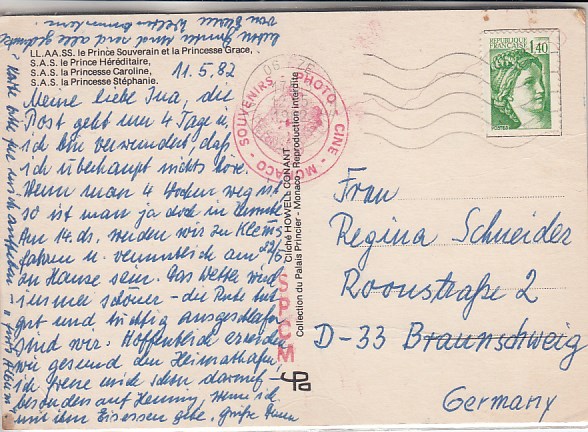 LL.AA.SS. le Prince Souverain et la Princesse Grace,
S.A.S. le Prince Héréditaire,
S.A.S. la princesse Caroline,
S.A.S. la Princesse Stéphanie.
11.5.82
Meine liebe Ina, die
Post geht um 4 Tage u.
ich bin verwundert daß
ich überhaupt nichts höre.
Wenn man 4 Wochen weg ist
so ist man ja doch in
Am 14. ds. werden wir zu
fahren u. vermutlich am 22/6
zu Hause sein. Das Wetter wird
immer schöner - die Ruhe tut
gut und tüchtig ausgeschlafen
sind wir. Hoffentlich erreichen
wir gesund den Heimathafen,
ich freue mich schon darauf -
besonders auf Henny, wenn ich
mit ihm Eisessen gehe. Grüße Deinen
lieben und seid alle
von Euren
Karte bitte für mich aufheben - "fürs Album"
SOUVENIRS - PHOTO - CINE - MONACO
Cliché HOWELL CONANT
Collection du Palais Princier - Monaco - Reproduction interdite
SPCM
REPUBLIQUE FRANÇAISE
1,40
POSTES
Frau
Regina Schneider
Roonstraße 2
D-33 Braunschweig
Germany